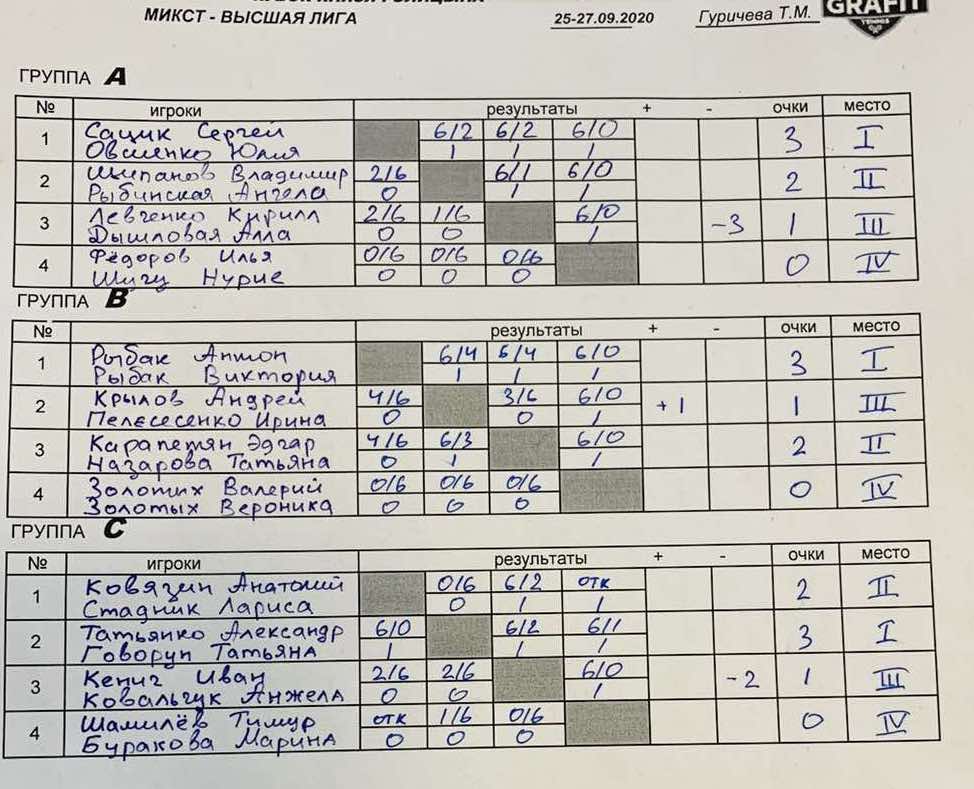 МИКСТ - ВЫСШАЯ ЛИГА 25-27.09.2020 Гуричева Т.М. GRAFIT
ГРУППА A
№ игроки результаты + - очки место
1 Сацик Сергей 6/2 6/2 6/0 3 I
Овсиенко Юлия 1 1 1
2 Щипанов Владимир 2/6 6/1 6/0 2 II
Рыбинская Ангела 0 1 1
3 Левченко Кирилл 2/6 1/6 6/0 -3 1 III
Дышловая Алла 0 0 1
4 Фёдоров Илья 0/6 0/6 0/6 0 IV
Шугу Нурие 0 0 0
ГРУППА B
№ результаты + - очки место
1 Рыбак Антон 6/4 6/4 6/0 3 I
Рыбак Виктория 1 1 1
2 Крылов Андрей 4/6 3/6 6/0 +1 1 III
Пелесесенко Ирина 0 0 1
3 Карапетян Эдгар 4/6 6/3 6/0 2 II
Назарова Татьяна 0 1 1
4 Золотих Валерий 0/6 0/6 0/6 0 IV
Золотых Вероника 0 0 0
ГРУППА C
№ игроки результаты + - очки место
1 Ковязин Анатолий 0/6 6/2 отк 2 II
Стадник Лариса 0 1 1
2 Татьянко Александр 6/0 6/2 6/1 3 I
Говорун Татьяна 1 1 1
3 Кениг Иван 2/6 2/6 6/0 -2 1 III
Ковальчук Анжела 0 0 1
4 Шамилёв Тимур отк 1/6 0/6 0 IV
Буракова Марина 0 0 0